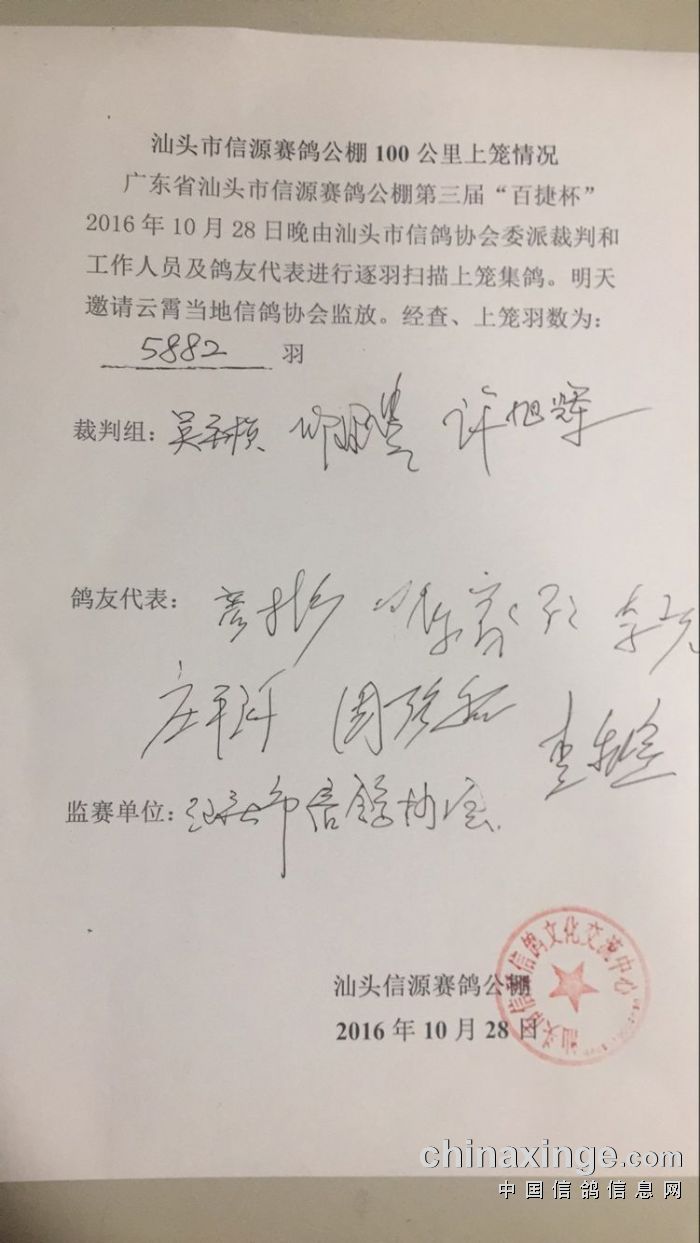 汕头市信源赛鸽公棚 100 公里上笼情况
广东省汕头市信源赛鸽公棚第三届“百捷杯”
2016 年 10 月 28 日晚由汕头市信鸽协会委派裁判和
工作人员及鸽友代表进行逐羽扫描上笼集鸽。明天
邀请云霄当地信鸽协会监放。经查、上笼羽数为：
5882 羽
裁判组： 许旭辉
鸽友代表：
监赛单位：汕头市信鸽协会
汕头信源赛鸽公棚
2016 年 10 月 28 日
chinaxinge.com
中国信鸽信息网